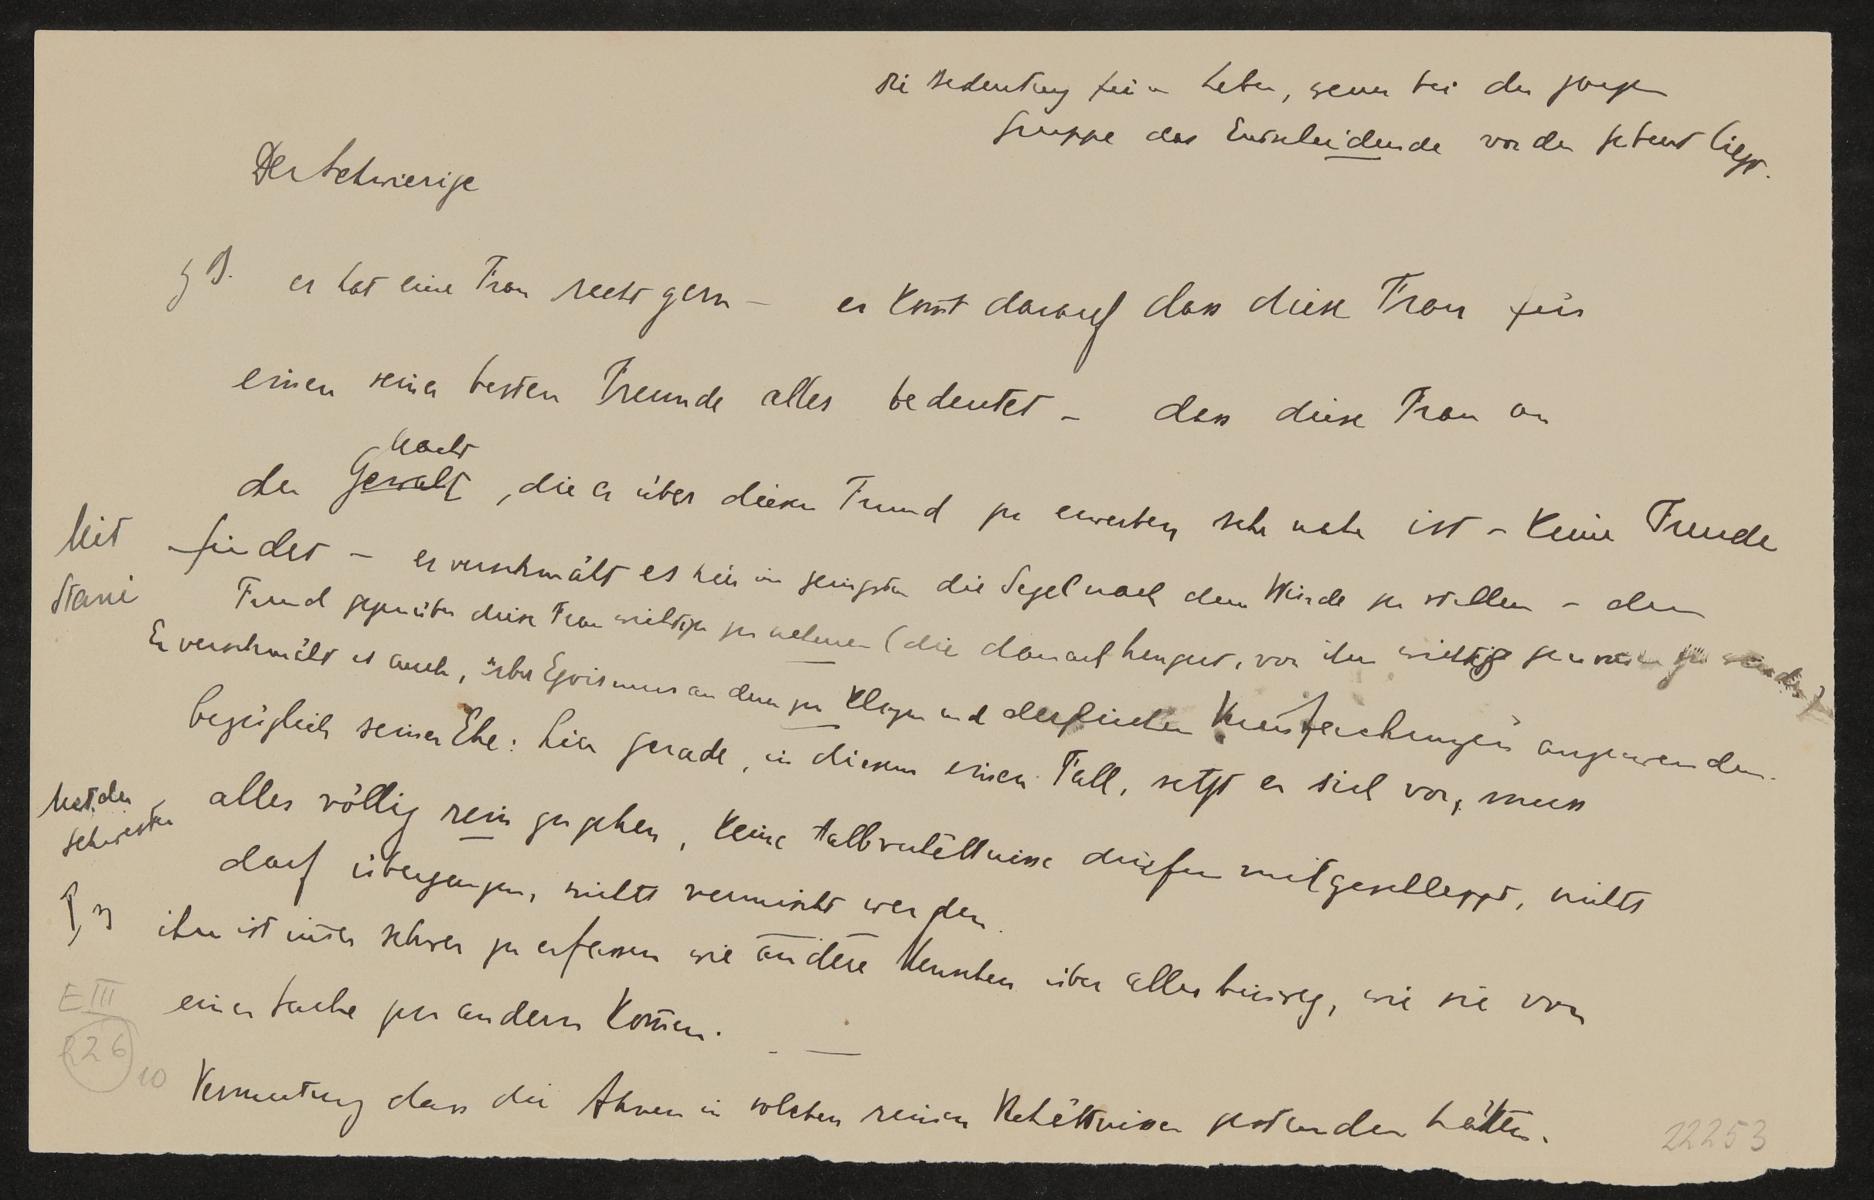 die Bedeutung fürs Leben, wenn bei der ganzen
Gruppe das Entscheidende vor der Geburt liegt.
Der Schwierige
z B. er hat eine Frau recht gern – er kom̅t darauf dass diese Frau für
einen seiner besten Freunde alles bedeutet – dass diese Frau an
Macht
der Gewalt, die er über diesen Freund zu erwerben sehr nahe ist – keine Freude
Mit findet – er verschmäht es hier im geringsten die Segel nach dem Winde zu stellen – den
Stani Freund gegenüber diese Frau wichtiger zu nehmen (die darnach hungert, von ihm wichtig genommen zu werden)
Er verschmäht es auch, über Egoismus an dem zu klagen und dergleichen Kunstfechtungen anzuwenden.
bezüglich seiner Ehe: hier gerade, in diesem einen Fall, setzt er sich vor, muss
Mit der alles völlig rein zugehen, keine Halbverhältnisse dürfen mitgeschleppt, nichts
Schwester darf übergangen, nichts vermischt werden.
ihm ist im̅er schwer zu erfassen wie andere Menschen über alles hinweg, wie sie von
einer Sache zur andern kom̅en.
E III
H 26
10
Vermutung dass die Ahnen in solchen reinen Verhältnissen gestanden hätten.
22253